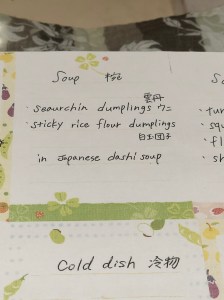 Soup 椀
雲丹
・seaurchin dumplings ウニ
・sticky rice flour dumplings
白玉団子
in Japanese dashi soup
Cold dish 冷物